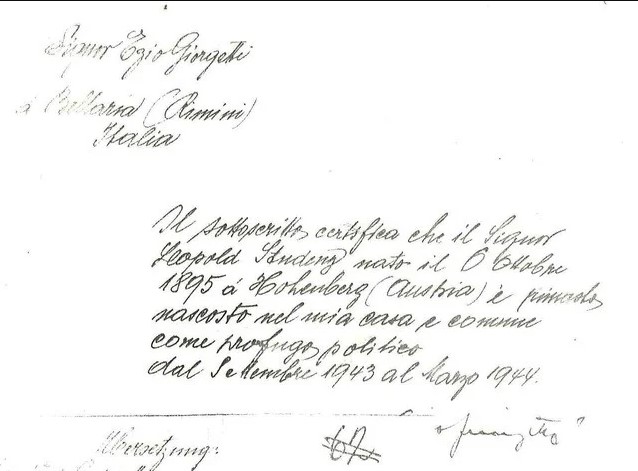 Signor Ezio Giorgetti
á Bellaria (Rimini)
Italia
Il sottoscritto, certifica che il Signor
Leopold Studenz nato il 6 Ottobre
1895 á Hohenberg (Austria) è rimasto
nascosto nel mia casa e comune
come profugo politico
dal Settembre 1943 al Marzo 1944.
Übersetzung: